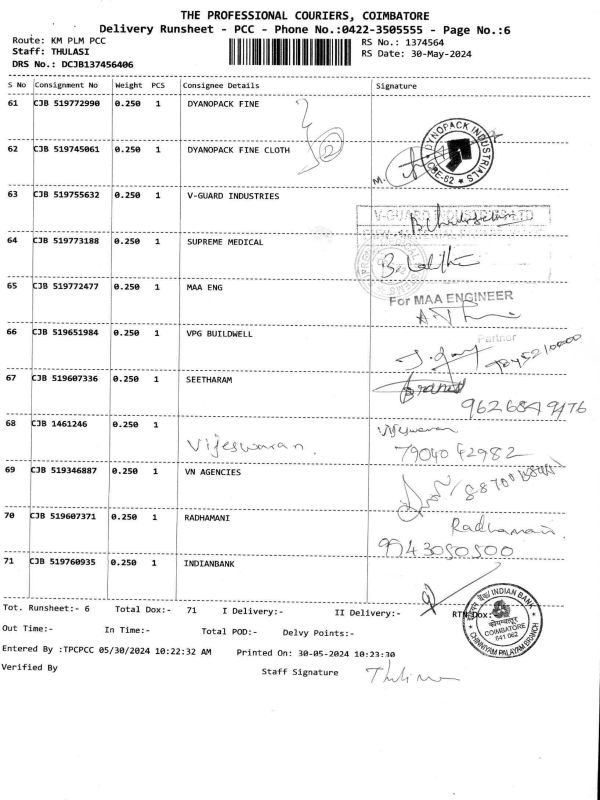 THE PROFESSIONAL COURIERS, COIMBATORE
Delivery Runsheet - PCC - Phone No.:0422-3505555 - Page No.:6
Route: KM PLM PCC
RS No.: 1374564
Staff: THULASI
RS Date: 30-May-2024
DRS No.: DCJB137456406
S No Consignment No Weight PCS Consignee Details Signature
61 CJB 519772990 0.250 1 DYANOPACK FINE
62 CJB 519745061 0.250 1 DYANOPACK FINE CLOTH
2
DYNOPACK INDUSTRIES
CBE-62
63 CJB 519755632 0.250 1 V-GUARD INDUSTRIES
V-GUARD INDUSTRIES LTD
64 CJB 519773188 0.250 1 SUPREME MEDICAL
B. Lalitha
65 CJB 519772477 0.250 1 MAA ENG
For MAA ENGINEER
Partner
66 CJB 519651984 0.250 1 VPG BUILDWELL
67 CJB 519607336 0.250 1 SEETHARAM
9626849176
68 CJB 1461246 0.250 1 Vijeswaran. Vijeswaran
7904042982
69 CJB 519346887 0.250 1 VN AGENCIES
70 CJB 519607371 0.250 1 RADHAMANI Radhamani.
9943050500
71 CJB 519760935 0.250 1 INDIANBANK
Tot. Runsheet:- 6 Total Dox:- 71 I Delivery:- II Delivery:- RTN Dox:
INDIAN BANK
COIMBATORE
641 062
CHINNIYAM PALAYAM BRANCH
Out Time:- In Time:- Total POD:- Delvy Points:-
Entered By :TPCPCC 05/30/2024 10:22:32 AM Printed On: 30-05-2024 10:23:30
Verified By Staff Signature